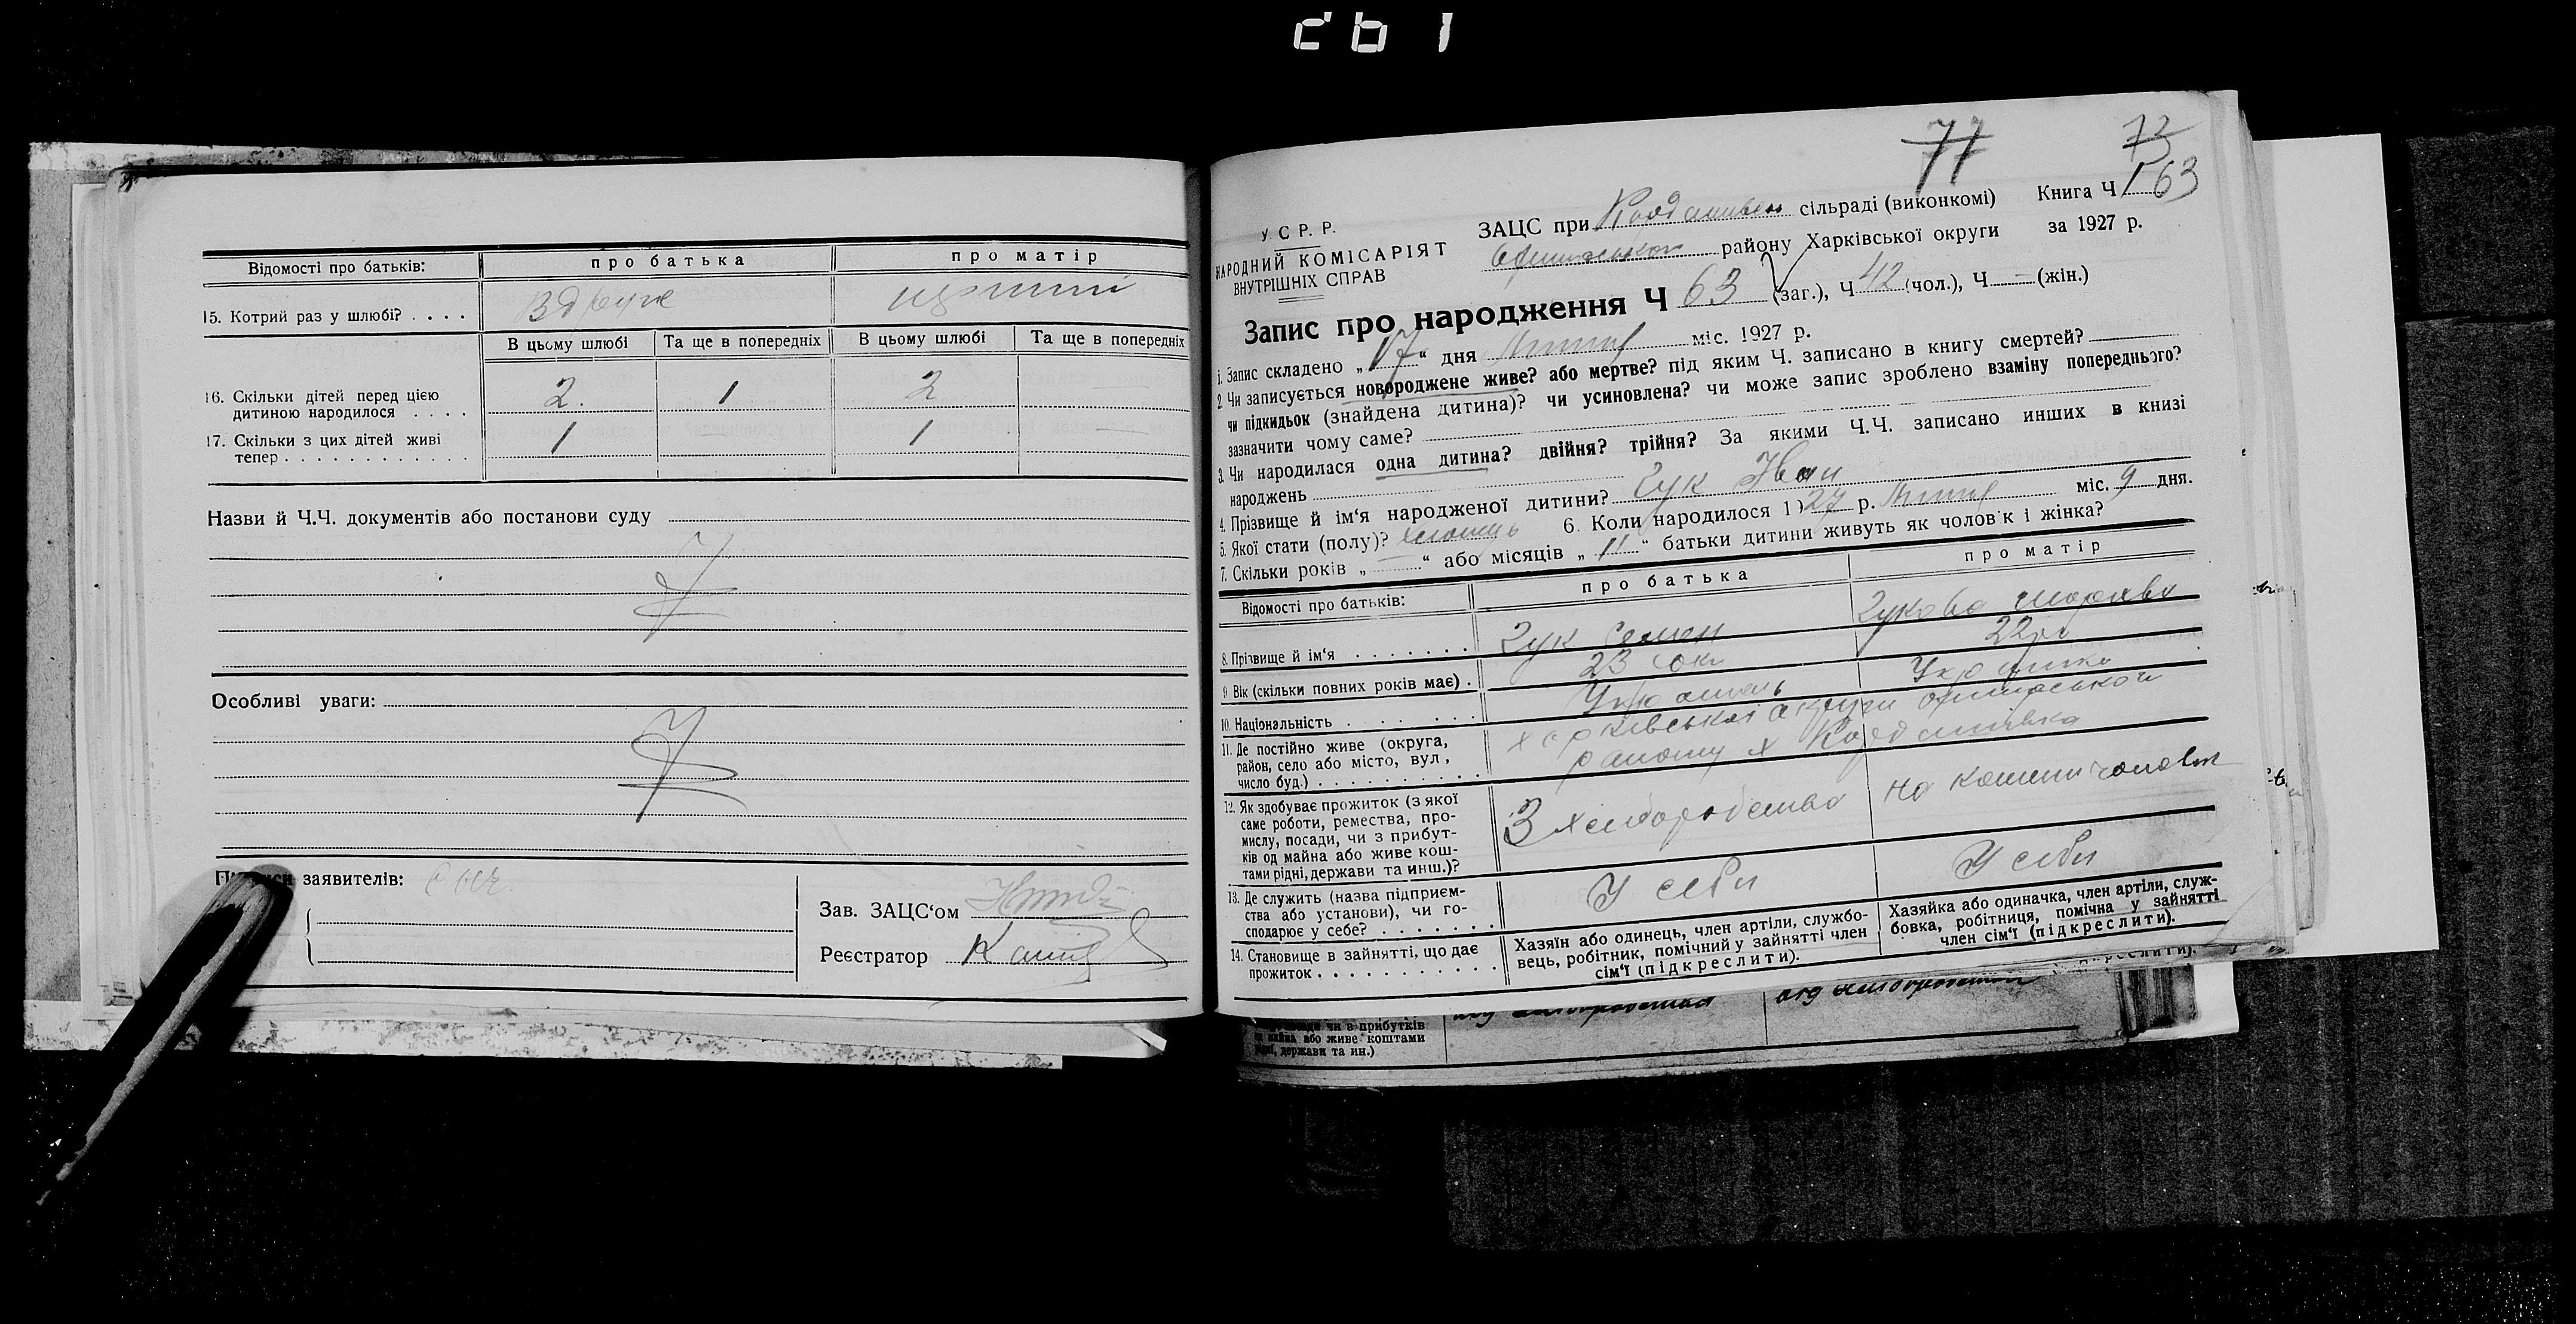 Відомості про батьків: про батька про матір
15. Котрий раз у шлюбі? . . . . Вдруге
В цьому шлюбі Та ще в попередніх В цьому шлюбі Та ще в попередніх
16. Скільки дітей перед цією
дитиною народилося . . . . 2. 1 2 —
17. Скільки з цих дітей живі
тепер . . . . . . . . . . . . 1 — 1 —
Назви й Ч.Ч. документів або постанови суду
Особливі уваги:
заявителів:
Зав. ЗАЦС‘ом
Реєстратор
77 73
У. С. Р. Р.
НАРОДНИЙ КОМІСАРІЯТ
ВНУТРІШНІХ СПРАВ
ЗАЦС при сільраді (виконкомі) Книга Ч 1 63
району Харківської округи за 1927 р.
Запис про народження Ч 63 (заг.), Ч 42 (чол.), Ч — (жін.)
1. Запис складено „17“ дня Липня міс. 1927 р.
2. Чи записується новороджене живе? або мертве? під яким Ч. записано в книгу смертей?
чи підкидьок (знайдена дитина)? чи усиновлена? чи може запис зроблено взаміну попереднього?
зазначити чому саме?
3. Чи народилася одна дитина? двійня? трійня? За якими Ч.Ч. записано инших в книзі
народжень
4. Прізвище й ім‘я народженої дитини? Гук Іван
5. Якої стати (полу)? хлопець 6. Коли народилося 1927 р. Липня міс. 9 дня.
7. Скільки років „—“ або місяців „11“ батьки дитини живуть як чолов'к і жінка?
Відомості про батьків: про батька про матір
8. Прізвище й ім‘я . . . . . . . Гук Семен Гукова
9. Вік (скільки повних років має) . 23 роки 22 р
10. Національність . . . . . . Українець Українка
11. Де постійно живе (округа,
район, село або місто, вул,
число буд.) . . . . . . . . . . Харківської округи
району х
12. Як здобуває прожиток (з якої
саме роботи, ремества, про-
мислу, посади, чи з прибут-
ків од майна або живе кош-
тами рідні, держави та инш.)? З хліборобства на кошти чоловіка
13. Де служить (назва підприєм-
ства або установи), чи го-
сподарює у себе? . . . . . . . У себи У себи
14. Становище в зайнятті, що дає
прожиток . . . . . . . . . . .
Хазяїн або одинець, член артіли, службо-
вець, робітник, помічний у зайнятті член
сім‘ї (підкреслити).
Хазяйка або одиначка, член артіли, служ-
бовка, робітниця, помічна у зайнятті
член сім‘ї (підкреслити).
чи в прибутків
або живе коштами
держави та ин.)